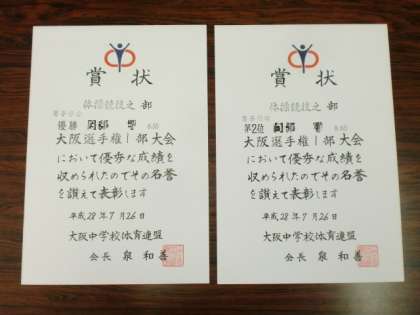 賞状
体操競技之部
優勝
大阪選手権1部大会
において優秀な成績を
収められたのでその名誉
を讃えて表彰します
平成28年7月26日
大阪中学校体育連盟
会長 泉 和善
賞状
体操競技之部
第2位
大阪選手権1部大会
において優秀な成績を
収められたのでその名誉
を讃えて表彰します
平成28年7月26日
大阪中学校体育連盟
会長 泉 和善